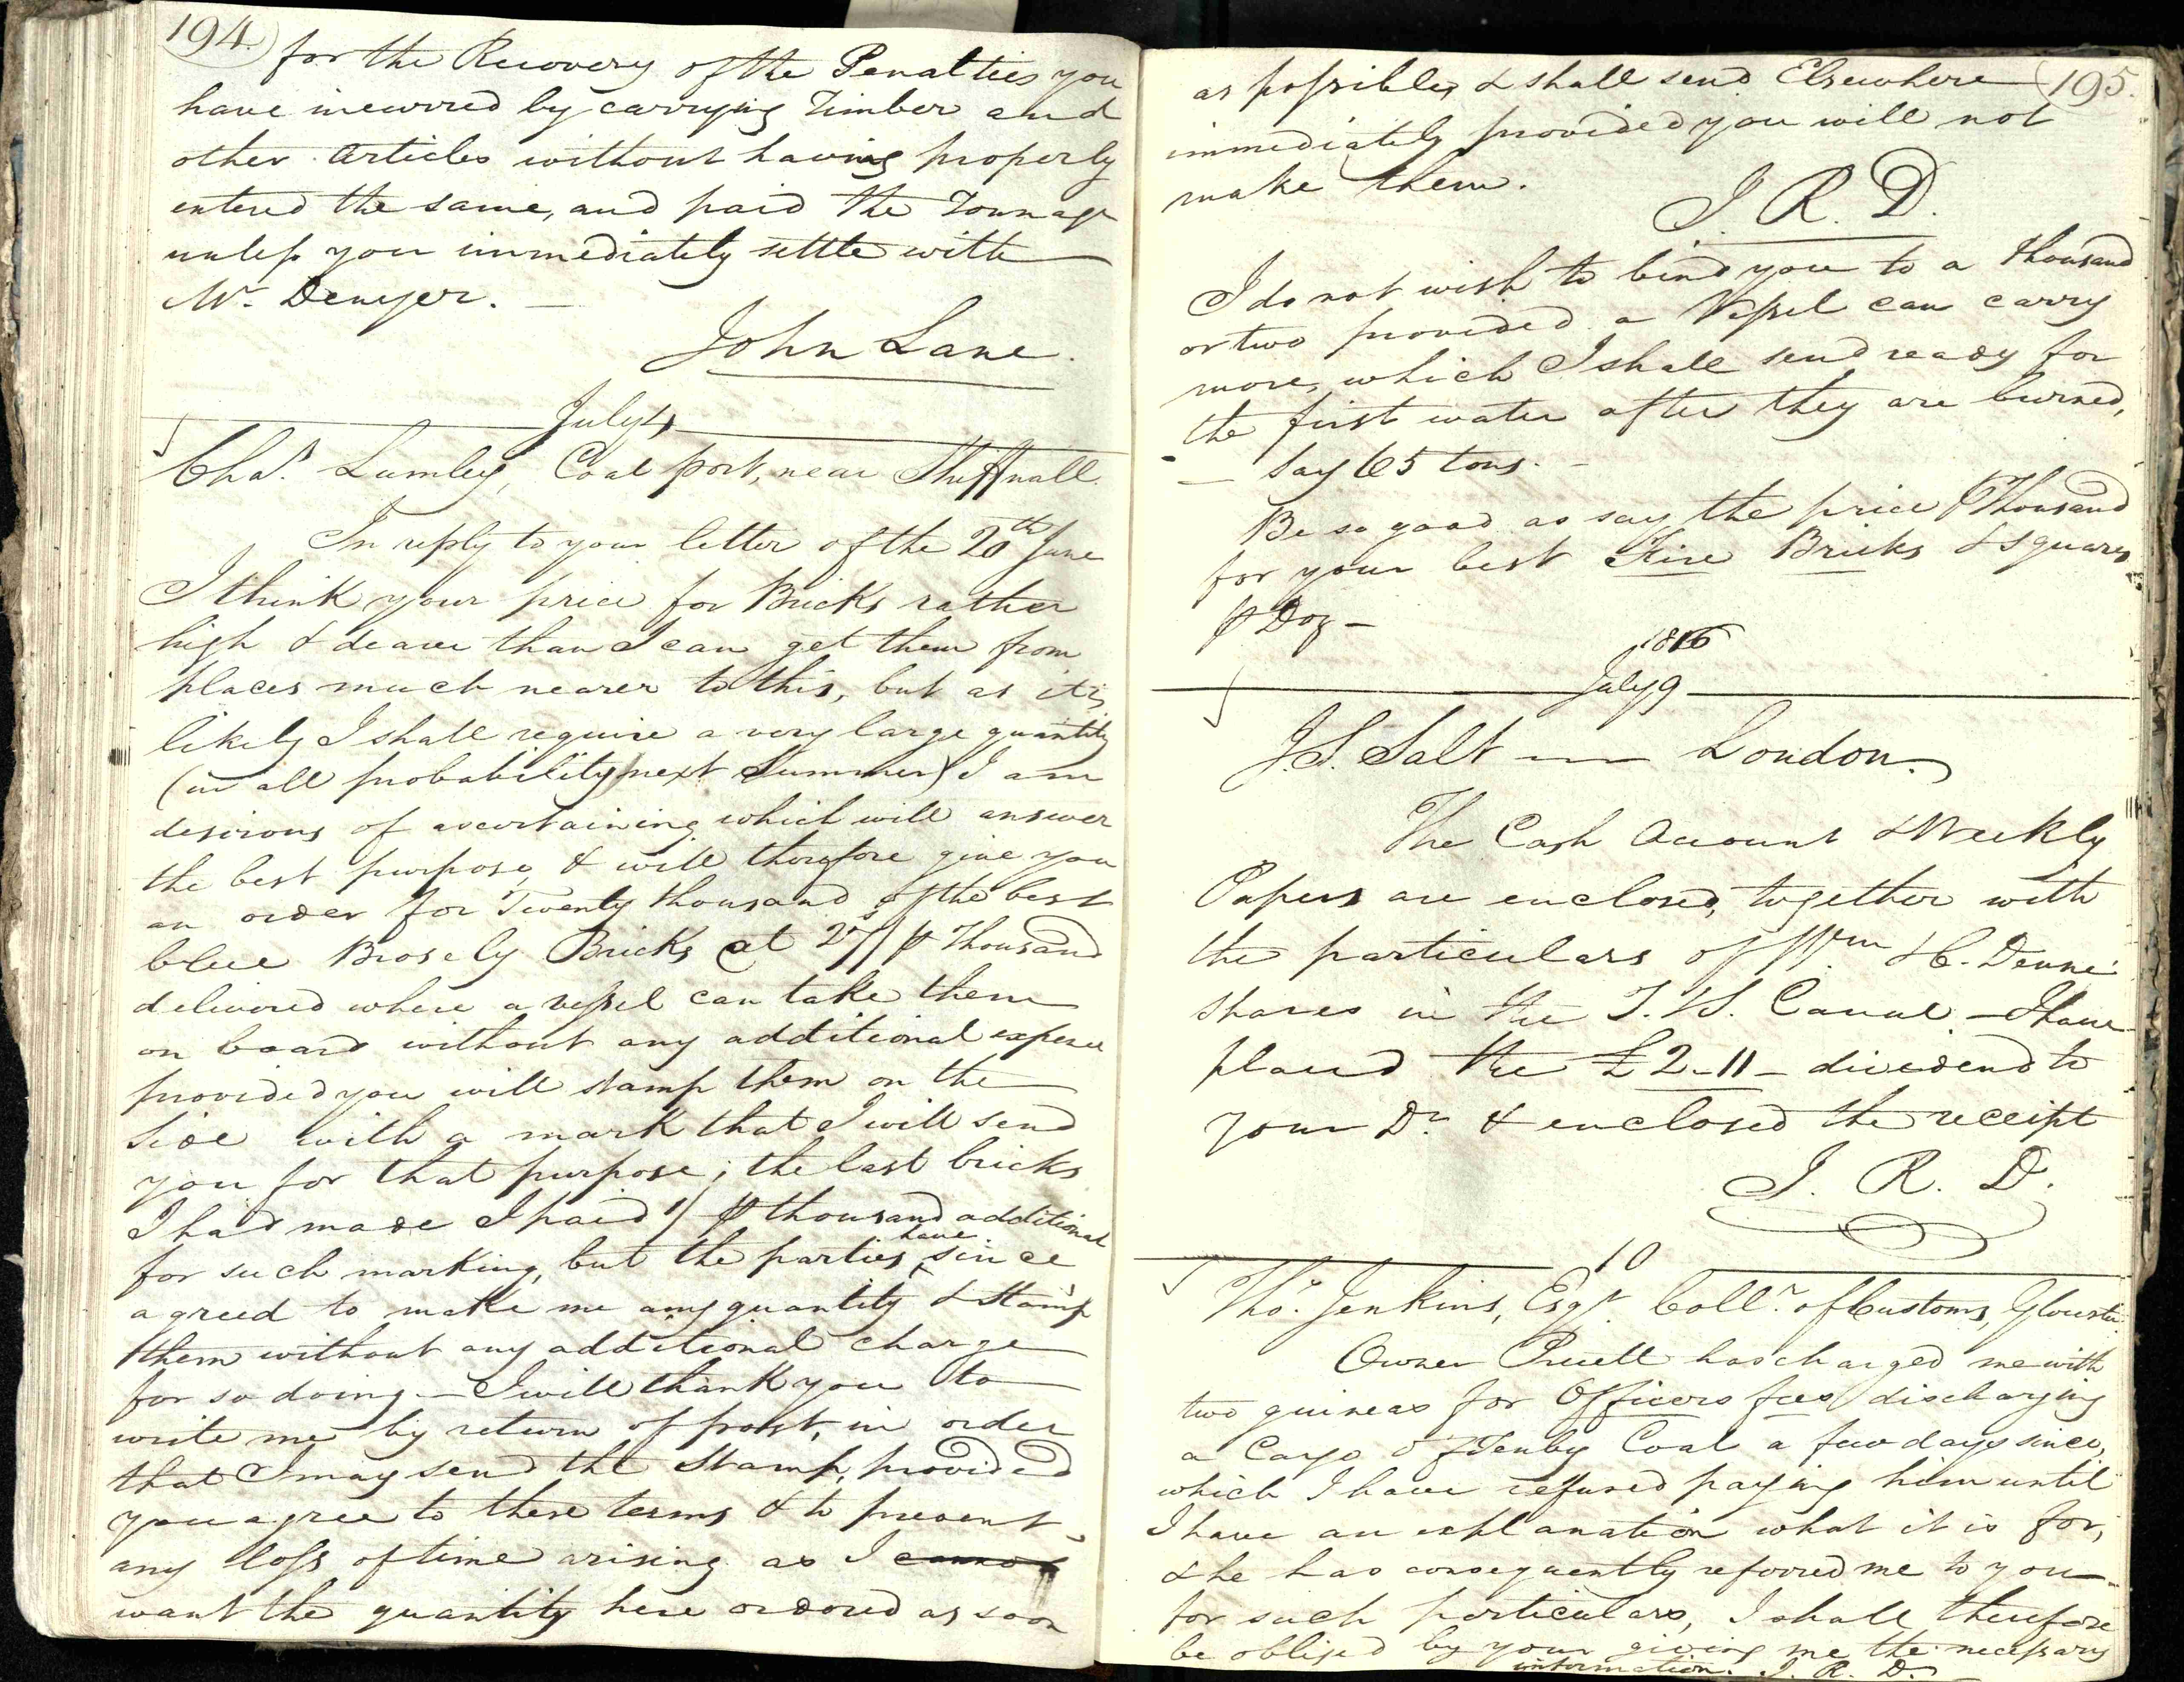 194.
for the Recovery of the Penalties you
have incurred by carrying Timber and
other articles without having properly
entered the same, and paid the Tonnage
unless you immediately settle with
Mr. Denyer. —
John Lane.
July 4
Chas. Lumley, Coal port, near Shiffnall.
In reply to your letter of the 20th June
I think your price for Bricks rather
high & dearer than I can get them from
places much nearer to this, but as it is
likely I shall require a very large quantity
(in all probability next Summer) I am
desirous of ascertaining which will answer
the best purpose, & will therefore give you
an order for Twenty thousand of the best
blue Brosely Bricks at 27/ ⅌ Thousand
delivered where a vessel can take them
on board without any additional expense
provided you will stamp them on the
side with a mark that I will send
you for that purpose; the last bricks
I had made I paid 1/ ⅌ thousand additional
for such marking, but the parties have since
agreed to make me any quantity & Stamp
them without any additional charge
for so doing. — I will thank you to
write me by return of post, in order
that I may send the Stamp, provided
you agree to these terms & to prevent
any loss of time arising as I cannot
want the quantity here ordered as soon
195.
as possible, & shall send Elsewhere
immediately provided you will not
make them.
J. R. D.
I do not wish to bind you to a thousand
or two provided a Vessel can carry
more, which I shall send ready for
the first water after they are burned,
— Say 65 tons. —
Be so good as say the price ⅌ Thousand
for your best Fire Bricks & squares
⅌ Doz —
1816
July 9
J. S. Salt — London.
The Cash Account & Weekly
Papers are enclosed, together with
the particulars of Wm. & C. Denne
shares in the T. & S. Canal — I have
placed the £2-11- dividend to
your Dr. & enclosed the receipt
J. R. D.
10
Thos. Jenkins, Esqr. Collr. of Customs, Glouster.
Owner Pruett has charged me with
two guineas for Officers fees discharging
a Cargo of Tenby Coal a few days since,
which I have refused paying him until
I have an explanation what it is for,
& he has consequently referred me to you
for such particulars, I shall therefore
be obliged by your giving me the necessary
information. J. R. D.